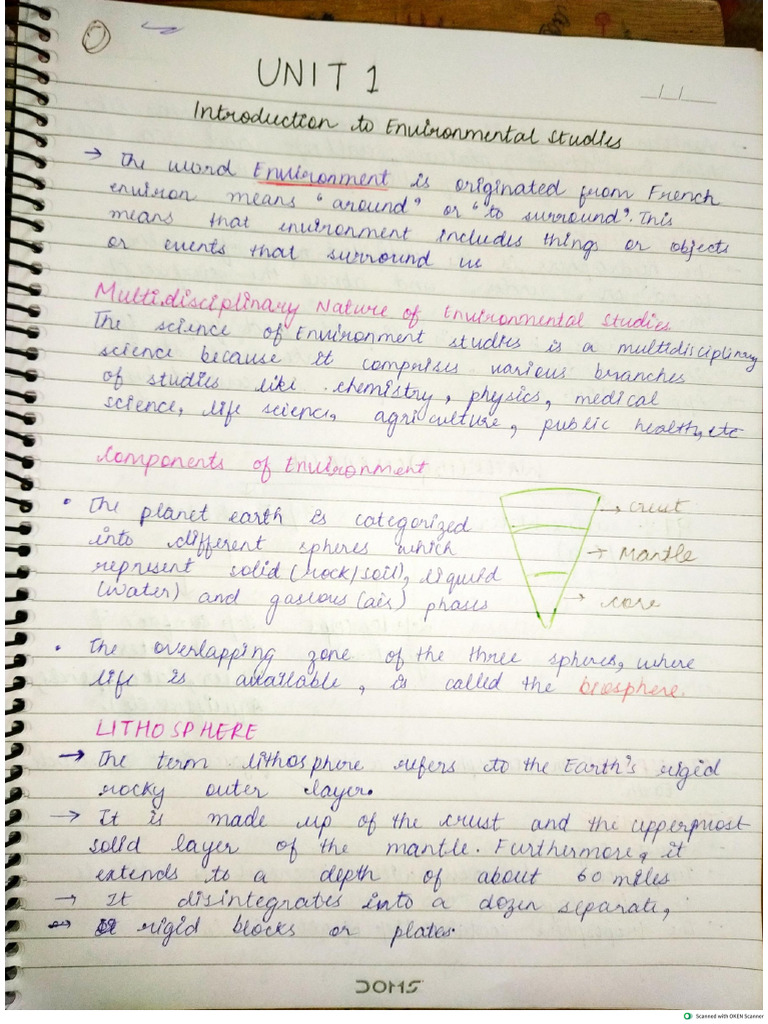 UNIT 1
Introduction to Environmental Studies
→ The word Environment is originated from French
environ means "around" or "to surround". This
means that environment includes things or objects
or events that surround us
Multidisciplinary Nature of Environmental Studies
The science of Environment studies is a multidisciplinary
science because it comprises various branches
of studies like chemistry, physics, medical
science, life science, agriculture, public health, etc
Components of Environment
• The planet earth is categorized
into different spheres which
represent solid (rock/soil), liquid
(water) and gaseous (air) phases
→ crust
→ Mantle
→ core
• The overlapping zone of the three spheres, where
life is available, is called the biosphere.
LITHOSPHERE
→ The term lithosphere refers to the Earth's rigid
rocky outer layer.
→ It is made up of the crust and the uppermost
solid layer of the mantle. Furthermore, it
extends to a depth of about 60 miles
→ It disintegrates into a dozen separate,
rigid blocks or plates.
DOMS
Scanned with OKEN Scanner